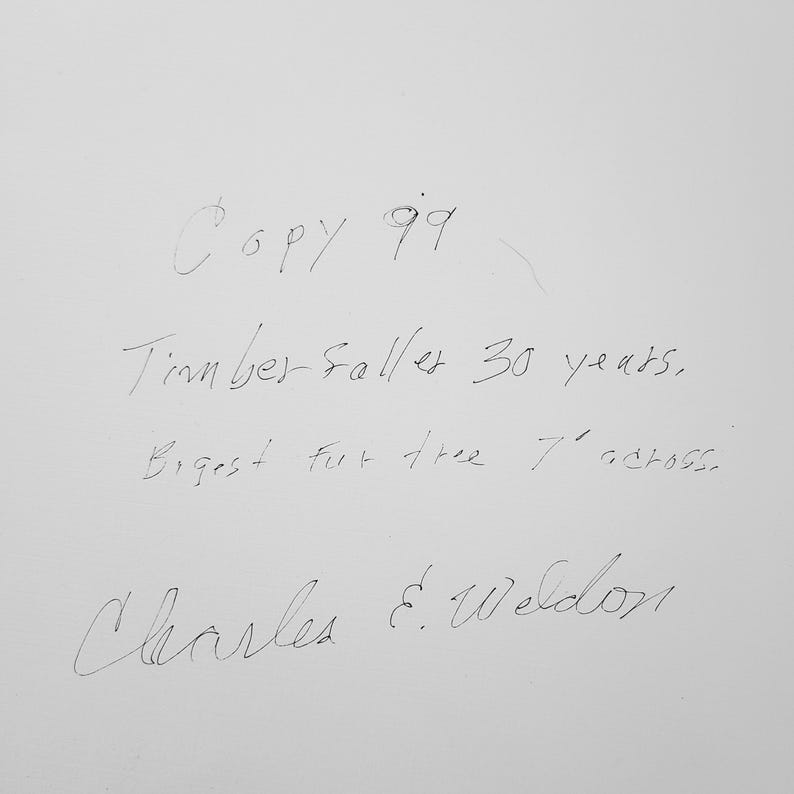 Copy 99
Timber faller 30 years.
Bigest fur tree 7' across.
Charles E. Weldon